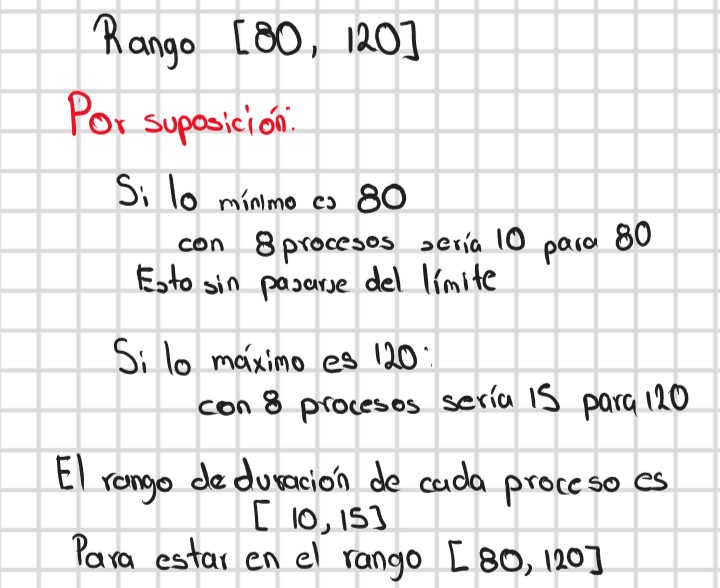 Rango [80, 120]
Por suposición:
Si lo mínimo es 80
con 8 procesos sería 10 para 80
Esto sin pasarse del límite
Si lo máximo es 120:
con 8 procesos sería 15 para 120
El rango de duración de cada proceso es
[ 10, 15]
Para estar en el rango [80, 120]